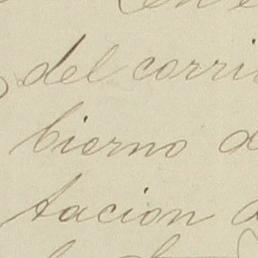 del corri
bierno d
tacion d